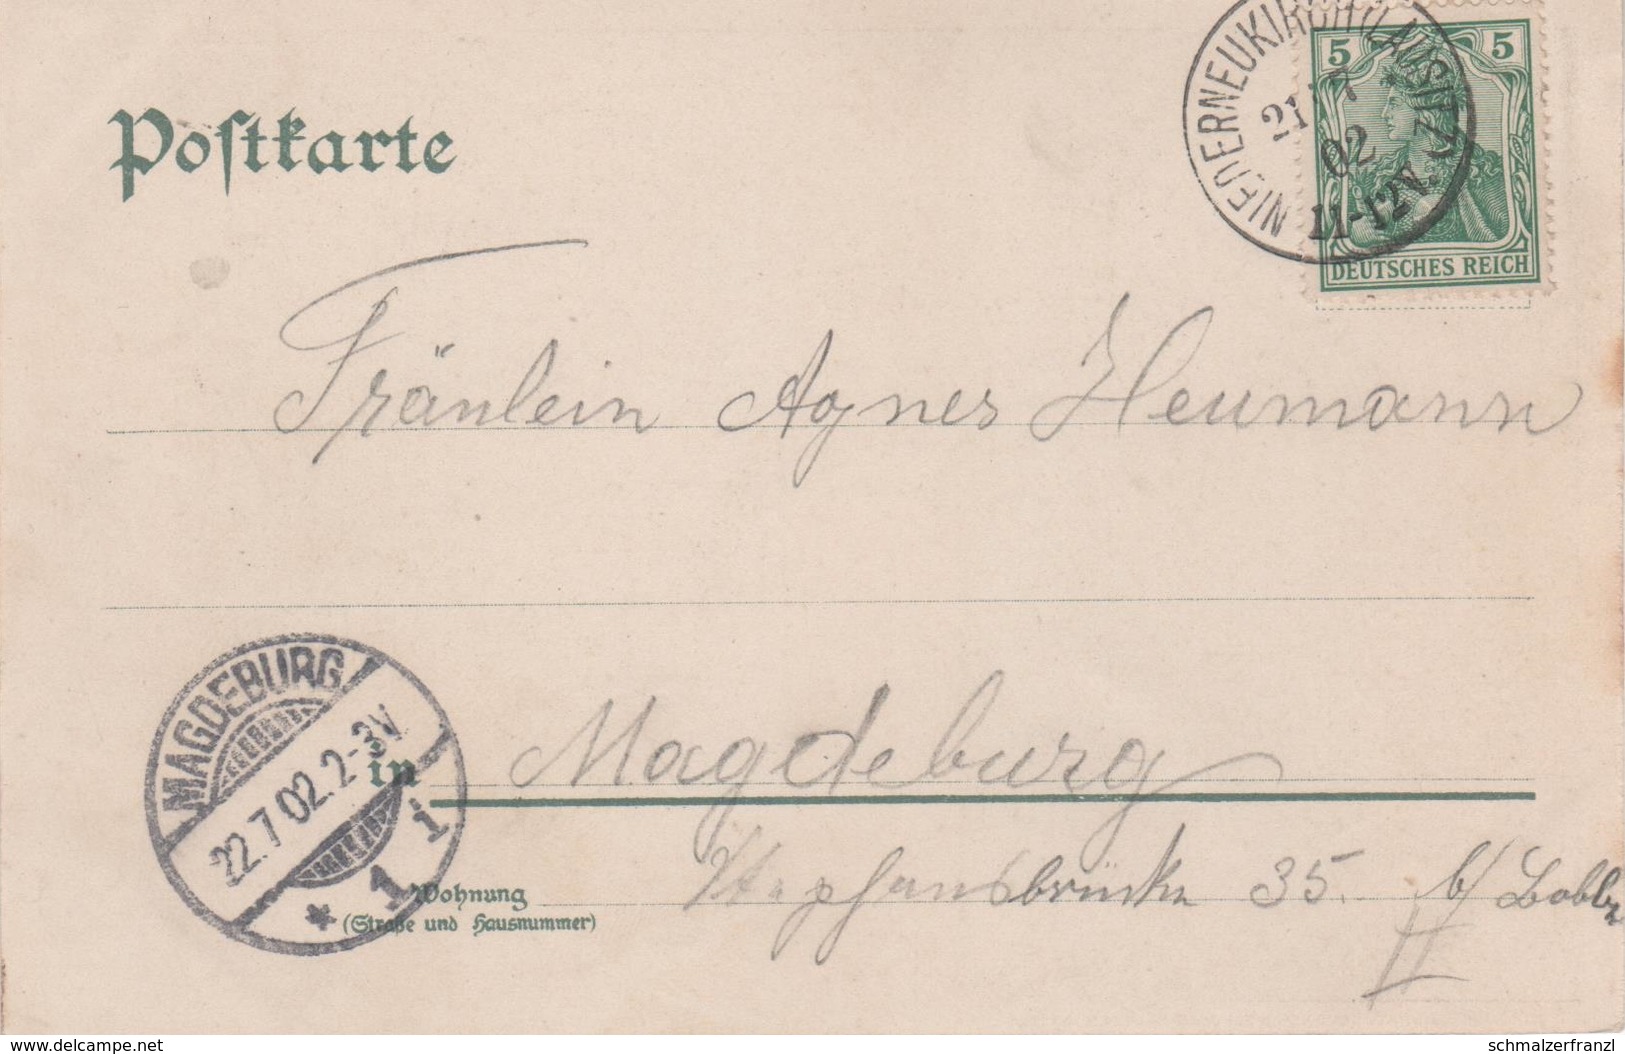 NIEDERNEUKIRCH (LAUSITZ)
21 7 02
11-12V.
5 5
DEUTSCHES REICH
Postkarte
Fräulein Agnes Heumann
MAGDEBURG
22.7.02.2-3V.
1 i
in Magdeburg
Stephansbrücke 35. b/
II
Wohnung
(Straße und Hausnummer)
www.delcampe.net
schmalzerfranzl